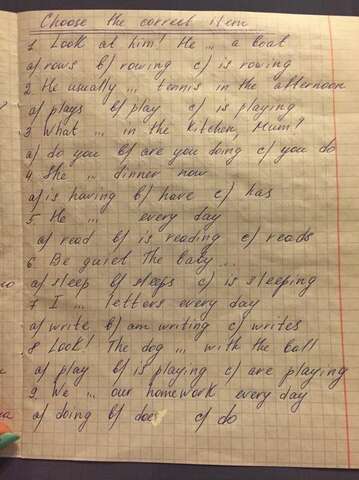 Choose the correct item
1 Look at him! He ... a boat
a) rows b) rowing c) is rowing
2 He usually ... tennis in the afternoon
a) plays b) play c) is playing
3 What ... in the kitchen, Mum?
a) do you b) are you doing c) you do
4. She ... dinner now
a) is having b) have c) has
5. He ... every day
a) read b) is reading c) reads
6 Be quiet The baby ...
a) sleep b) sleeps c) is sleeping
7 I ... letters every day
a) write b) am writing c) writes
8 Look! The dog ... with the ball
a) play b) is playing c) are playing
9. We ... our homework every day
a) doing b) does c) do